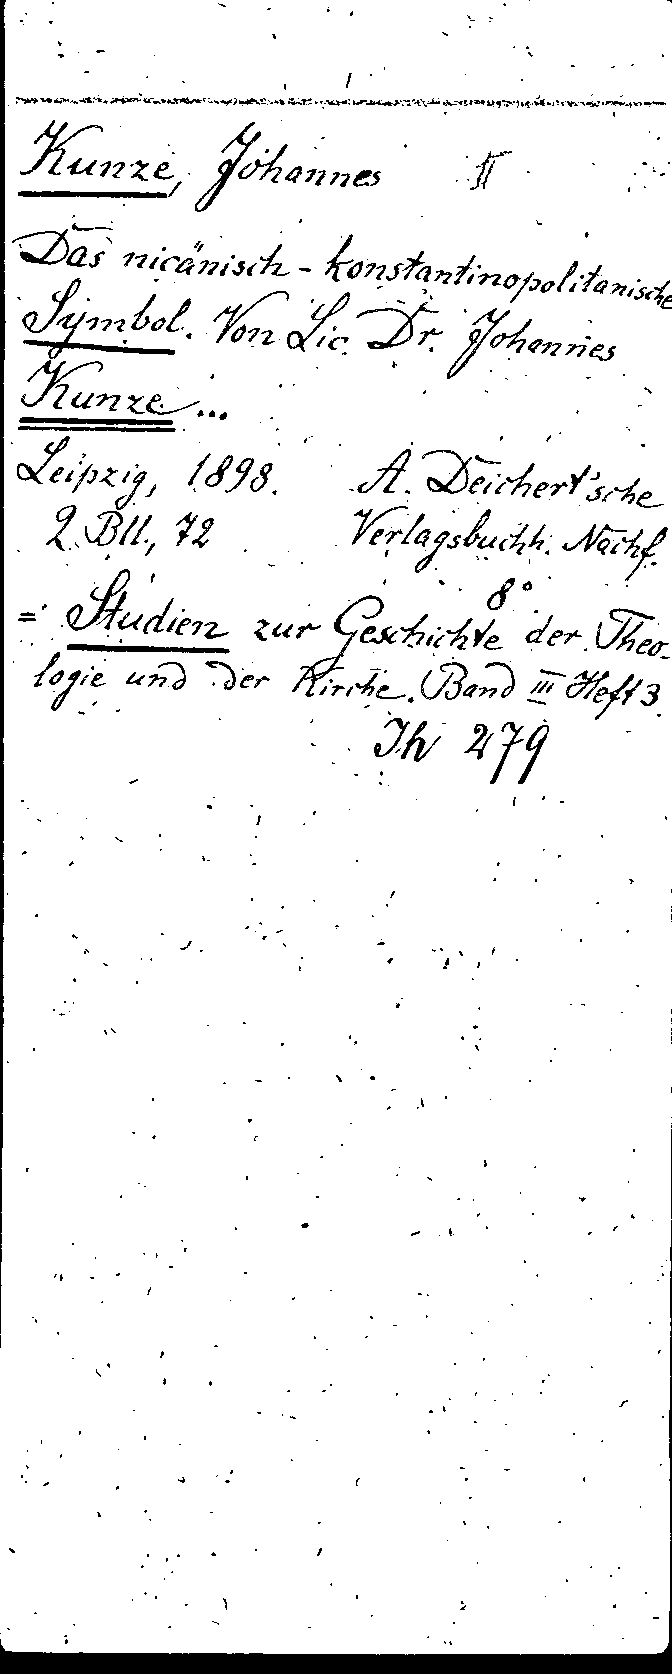 Kunze, Johannes II
Das nicänisch-konstantinopolitanische
Symbol. Von Lic. Dr. Johannes
Kunze ...
Leipzig, 1898. A. Deichert'sche
2 Bll., 72 Verlagsbuchh. Nachf.
8°
= Studien zur Geschichte der Theo-
logie und der Kirche. Band III Heft 3.
Th 279